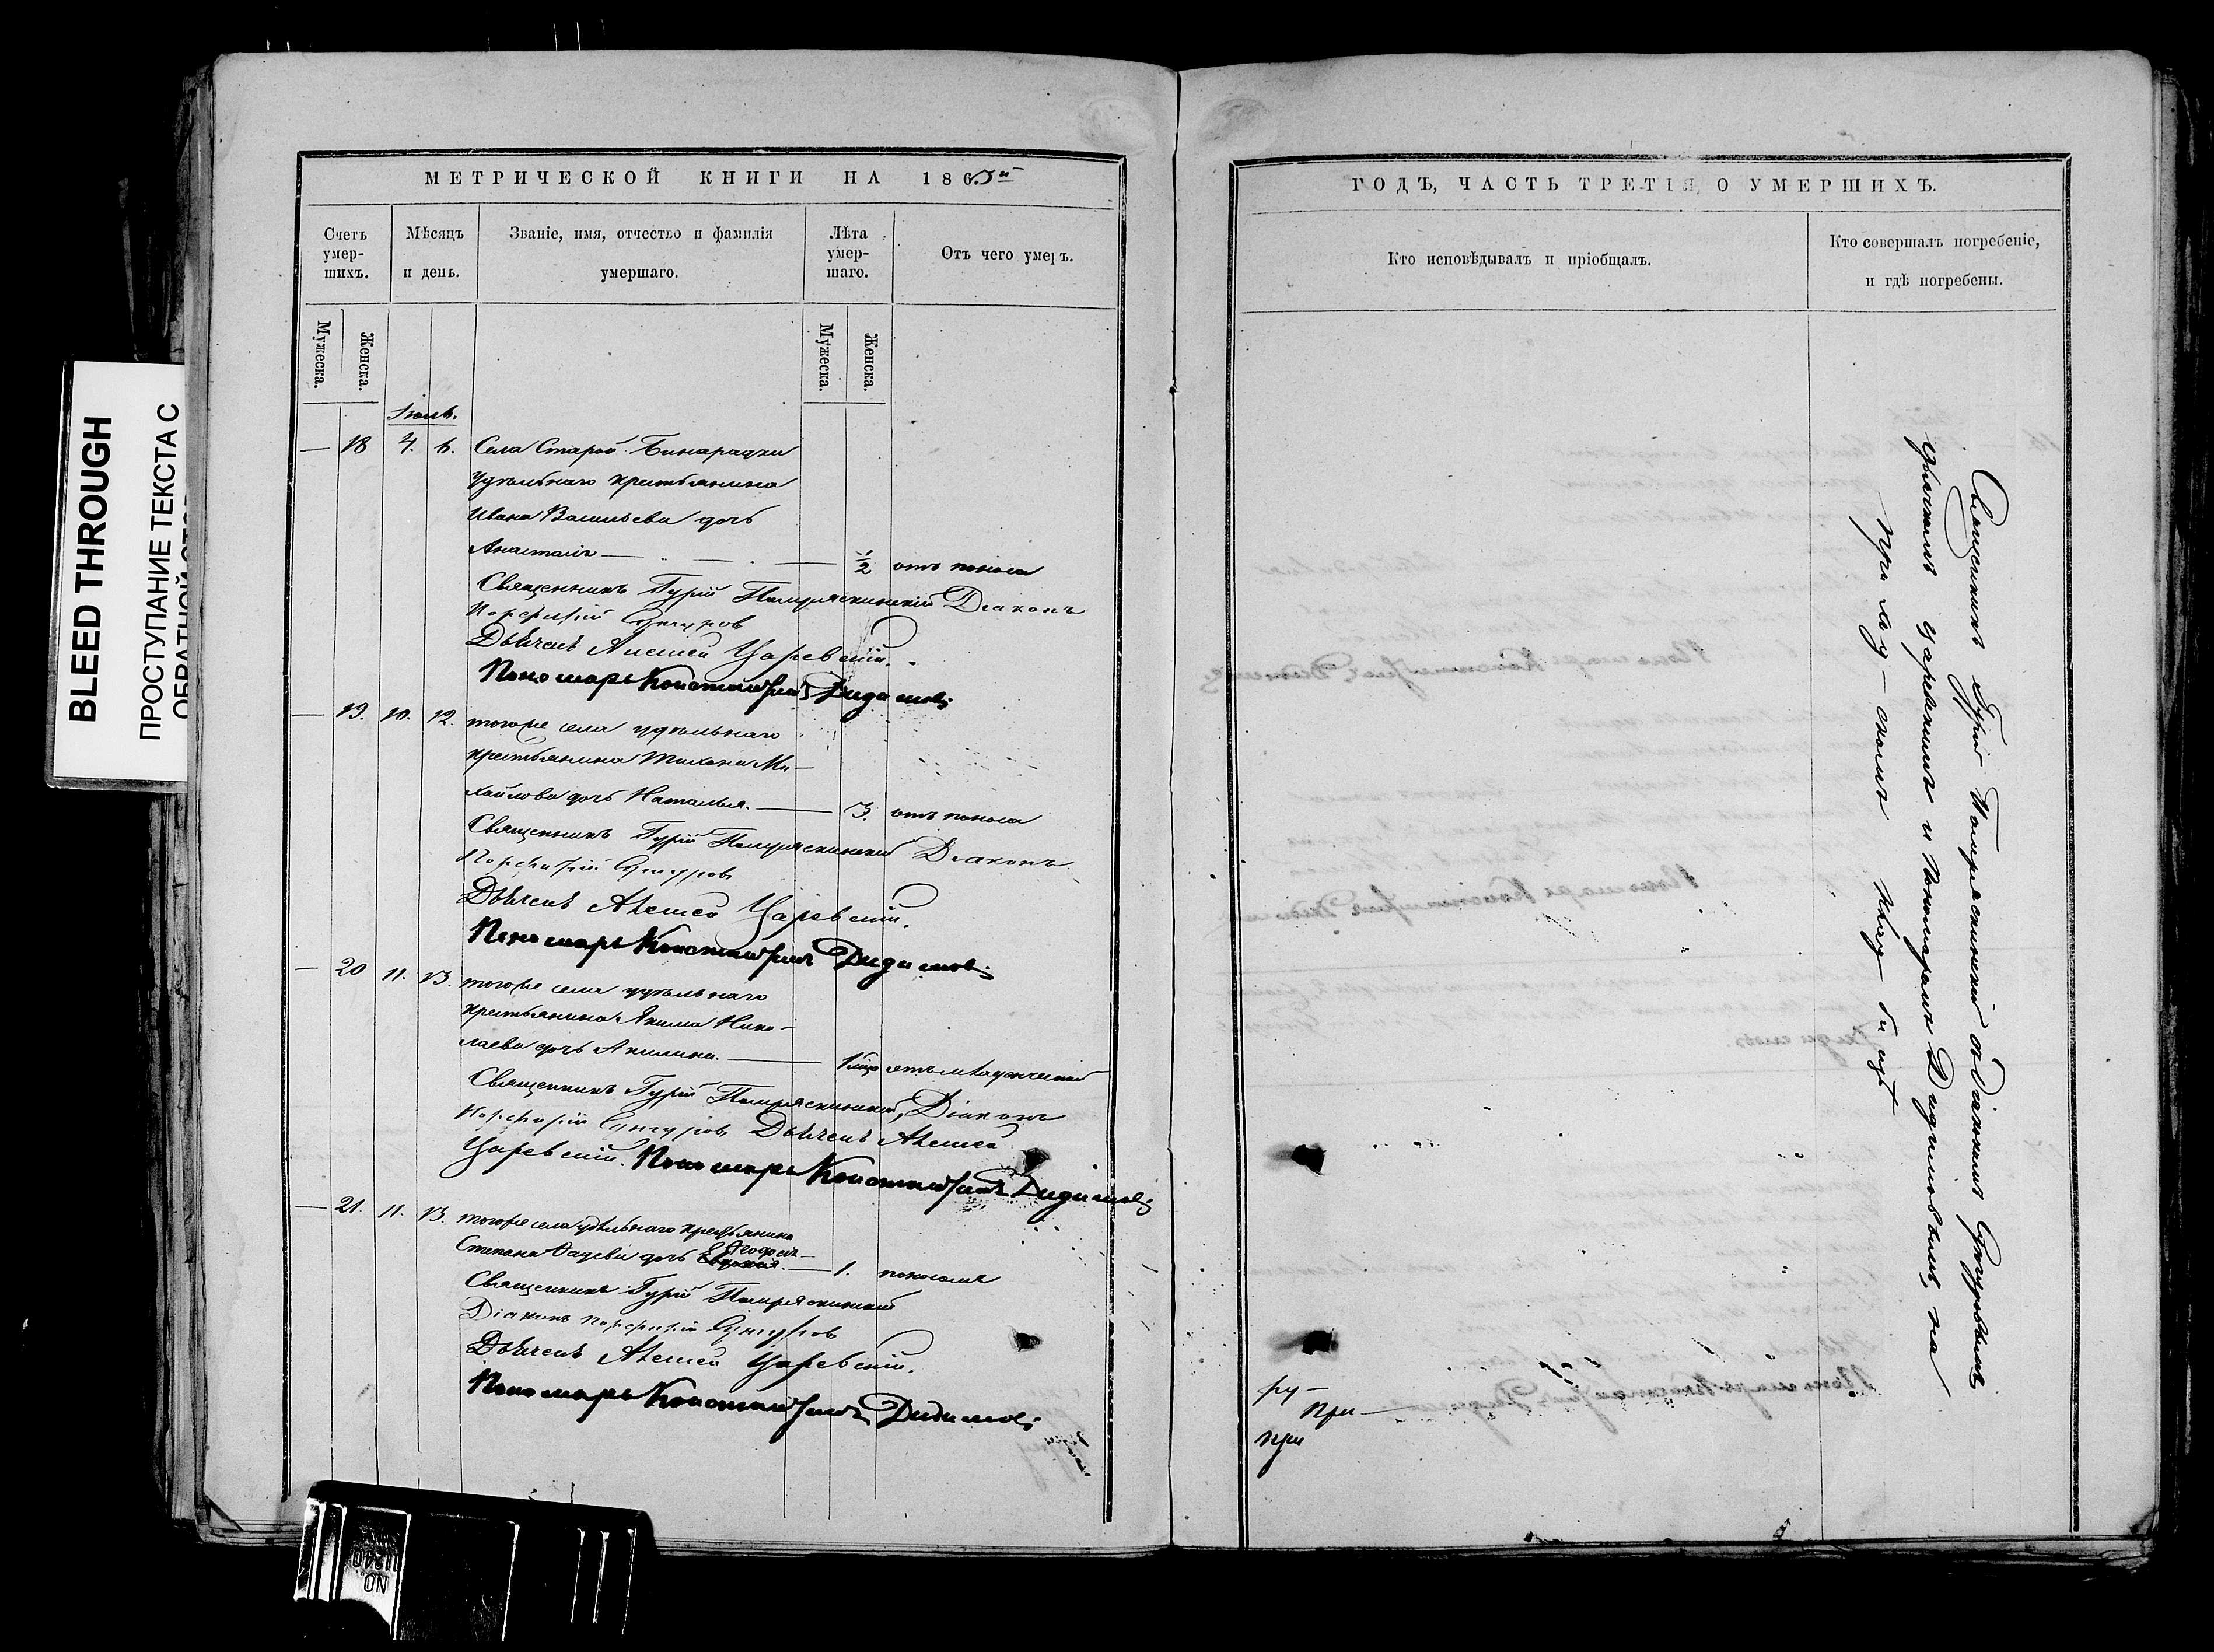 BLEED THROUGH
ПРОСТУПАНИЕ ТЕКСТА С
МЕТРИЧЕСКОЙ КНИГИ НА 1865й
Счетъ умер-шихъ.
Мѣсяцъ и день.
Званіе, имя, отчество и фамилія умершаго.
Лѣта умер-шаго.
Отъ чего умеръ.
Мужеска.
Женска.
Мужеска.
Женска.
Іюль.
— 18 4. 6. Села Старой Бинарадки
удѣльнаго крестьянина
Ивана Васильева дочь
Анастасія — 1/2 отъ поноса
Священникъ Гурій Помряскинскій Діаконъ
Порфирій Сунгуров
Дьячекъ Алексей Царевскій.
Пономарь Константинъ Дидимовъ
— 19. 10. 12. тогоже села удѣльнаго
крестьянина Тихона Ми-
хайлова дочь Наталья. — 3. отъ поноса
Священникъ Гурій Помряскинскій Діаконъ
Порфирій Сунгуров
Дьячекъ Алексей Царевскій.
Пономарь Константинъ Дидимовъ
— 20 11. 13. тогоже села удѣльнаго
крестьянина Якима Нико-
лаева дочь Акилина. — 1 мца отъ младенческой
Священникъ Гурій Помряскинскій, Діаконъ
Порфирій Сунгуров Дьячекъ Алексей
Царевскій. Пономарь Константинъ Дидимовъ
— 21. 11. 13. тогоже села удѣльнаго крестьянина
Степана дочь — 1. поносомъ
Священникъ Гурій Помряскинскій
Діаконъ Порфирій Сунгуров
Дьячекъ Алексей Царевскій.
Пономарь Константинъ Дидимовъ
ГОДЪ, ЧАСТЬ ТРЕТІЯ, О УМЕРШИХЪ.
Кто исповѣдывалъ и пріобщалъ.
Кто совершалъ погребеніе, и гдѣ погребены.
Священникъ Гурій Помряскинскій съ Діакономъ Сунгуровымъ
дьячкомъ Царевскимъ и Пономаремъ Дидимовымъ, на
при-
при